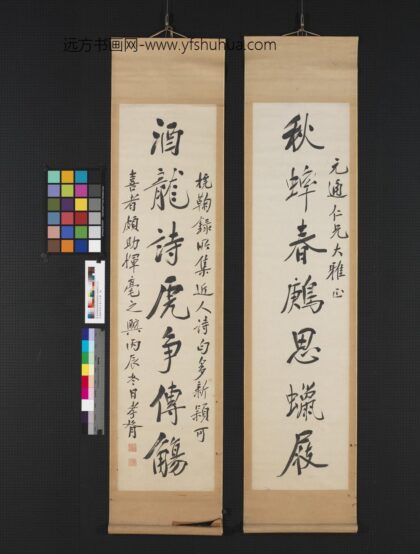 远方书画网-www.yfshuhua.com
元通仁兄大雅正
秋蟀春鷓思蠟屐
酒龍詩虎爭傳觴
枕鞠錄所集近人詩句多新穎可
喜者頗助揮毫之興丙辰冬日孝胥